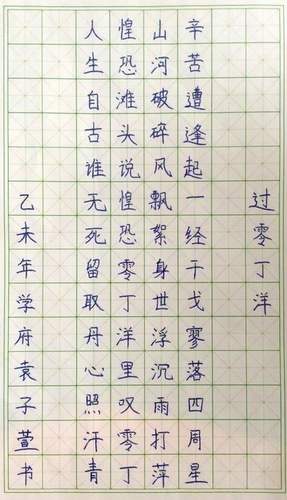 过零丁洋
辛苦遭逢起一经干戈寥落四周星
山河破碎风飘絮身世浮沉雨打萍
惶恐滩头说惶恐零丁洋里叹零丁
人生自古谁无死留取丹心照汗青
乙未年学府袁子萱书